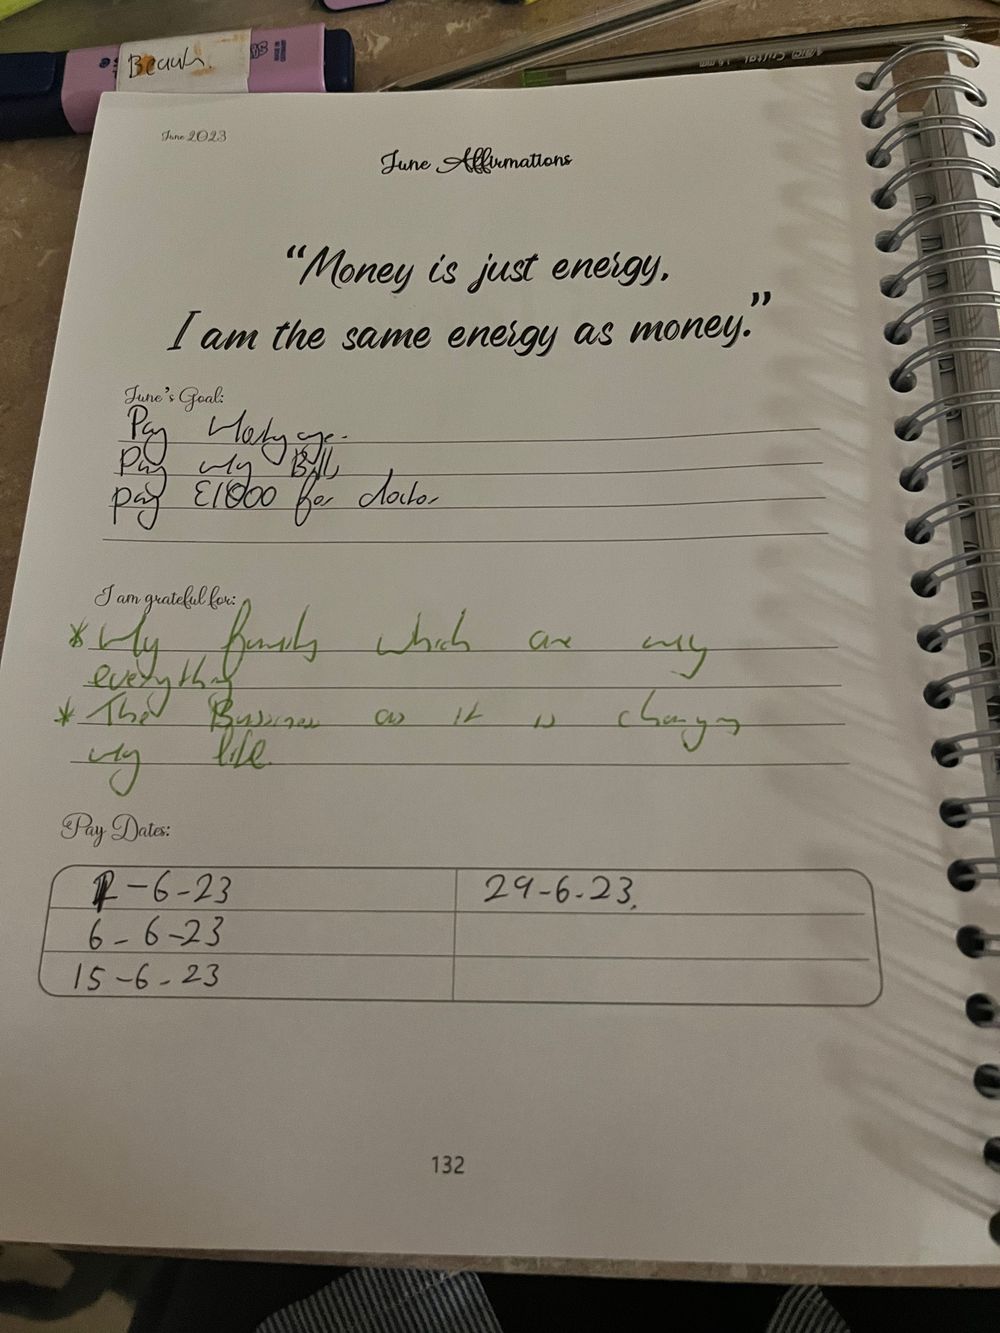 Beauty.
June 2023
June Affirmations
"Money is just energy.
I am the same energy as money."
June's Goal:
Pay Mortgage.
Pay my Bills
pay £1000 for doctor
I am grateful for:
* My family which are my
everything
* The Business as it is changing
my life.
Pay Dates:
1-6-23
29-6-23.
6-6-23
15-6-23
132